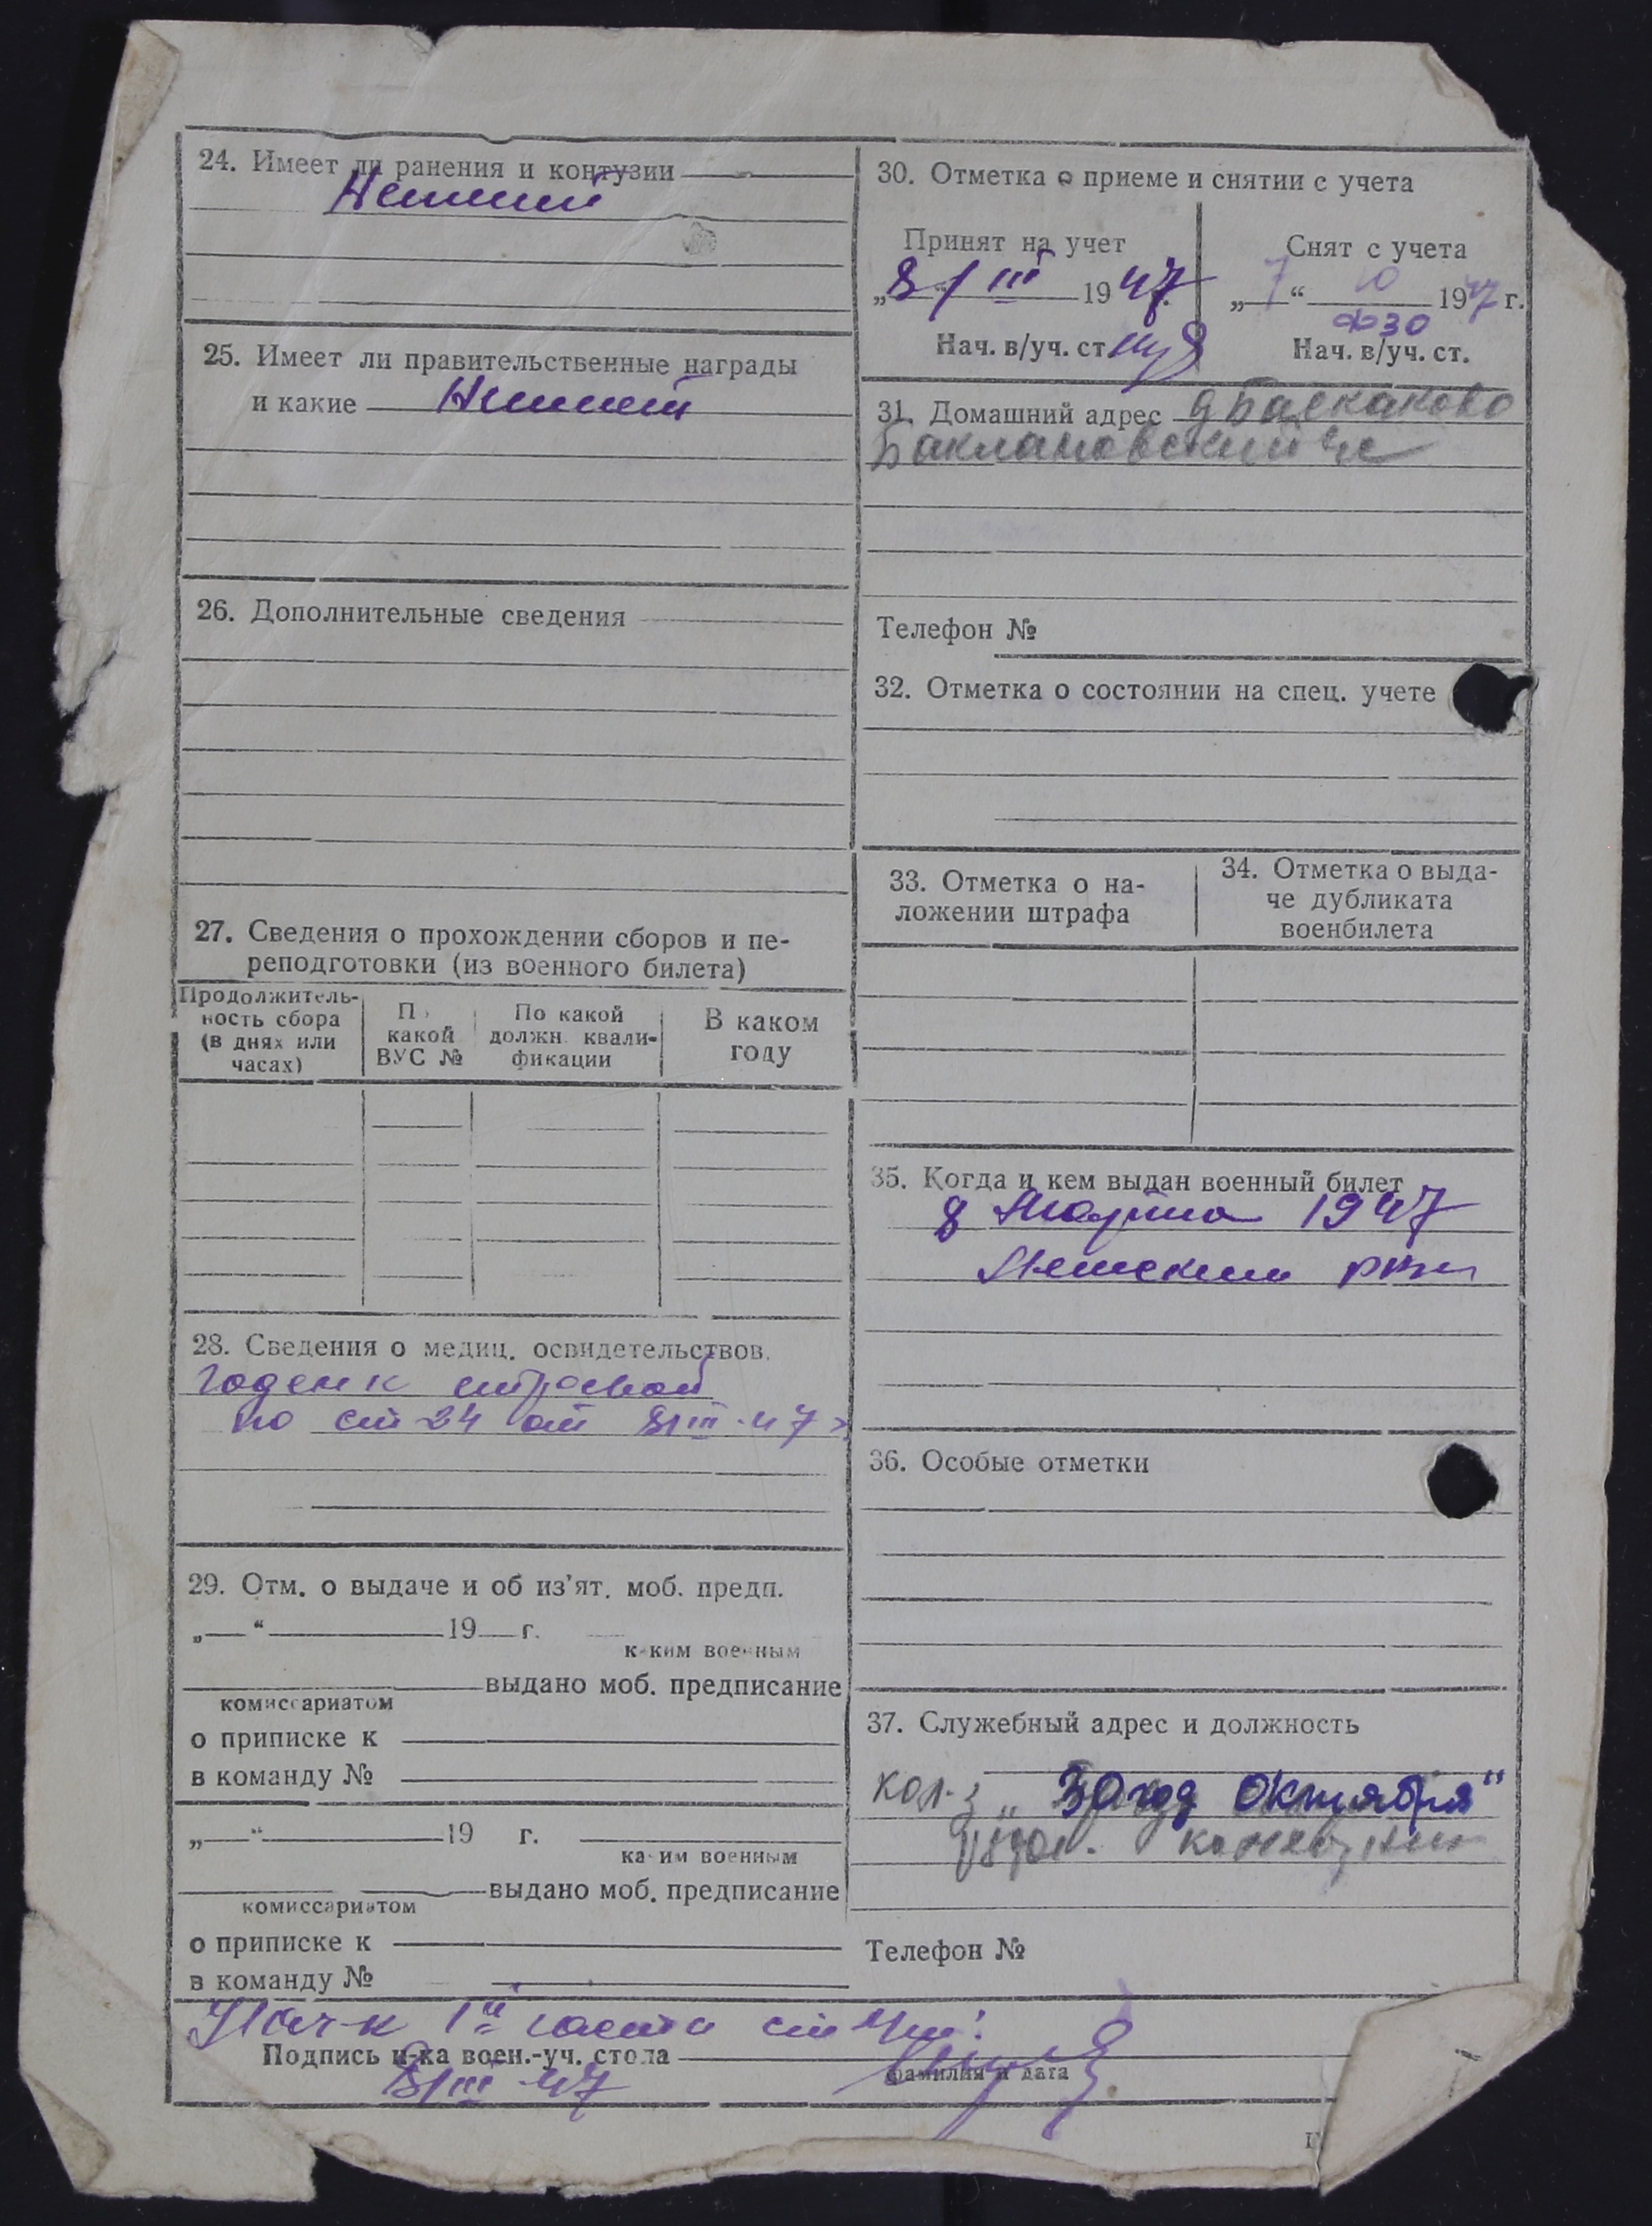 24. Имеет ли ранения и контузии
Не имеет
25. Имеет ли правительственные награды
и какие Не имеет
26. Дополнительные сведения
27. Сведения о прохождении сборов и пе-
реподготовки (из военного билета)
Продолжитель-
ность сбора
(в днях или
часах)
По
какой
ВУС №
По какой
должн. квали-
фикации
В каком
году
28. Сведения о медиц. освидетельствов.
Годен к строевой
по ст 24 от 8/III-47 г.
29. Отм. о выдаче и об из'ят. моб. предп.
„ “ 19 г.
каким военным
комиссариатом
выдано моб. предписание
о приписке к
в команду №
„ “ 19 г.
каким военным
комиссариатом
выдано моб. предписание
о приписке к
в команду №
30. Отметка о приеме и снятии с учета
Принят на учет
„8“ III 1947 г.
Нач. в/уч. ст.
Снят с учета
„7“ 10 1947 г.
ФЗО
Нач. в/уч. ст.
31. Домашний адрес
Баклановский
Телефон №
32. Отметка о состоянии на спец. учете
33. Отметка о на-
ложении штрафа
34. Отметка о выда-
че дубликата
военбилета
35. Когда и кем выдан военный билет
8 Марта 1947
36. Особые отметки
37. Служебный адрес и должность
кол-з „30 год Октября“
Телефон №
Нач-к 1й части
Подпись н-ка воен.-уч. стола
фамилия и дата
8/III-47